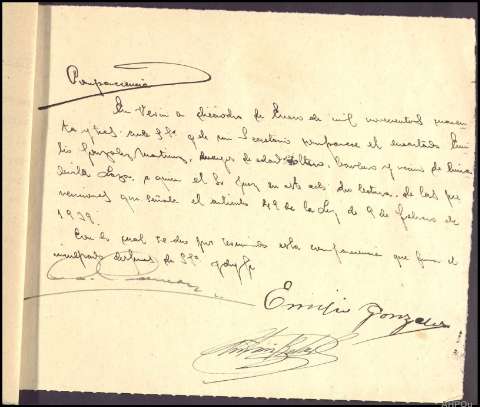 Comparecencia
En Verin a dieciocho de Enero de mil novecientos cuaren
ta y tres ante Sª y de mi Secretario comparece el encartado Emi
lio Gonzalez Martinez, mayor de edad soltero, y vecino de
a quien el Sr Juez en este acto dio lectura de las pre
venciones que señala el articulo 49 de la Ley de 9 de febrero de
1939.
Con lo cual se dio por terminada esta comparecencia que firma el
inculpado despues de Sª y doy fe
Emilio Gonzalez
AHPOu